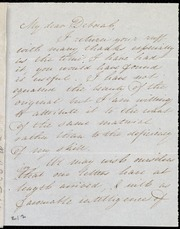 My dear Deborah,
I return your ruff
with many thanks especially
as the time I have had
it, you would have found
it useful. I have not
equalled the beauty of the
original but I am willing
to attribute it to the want
of the same material
rather than to the deficiency
of my skill.
We may wish
that our letters have at
length arrived, & with as
favorable intelligence